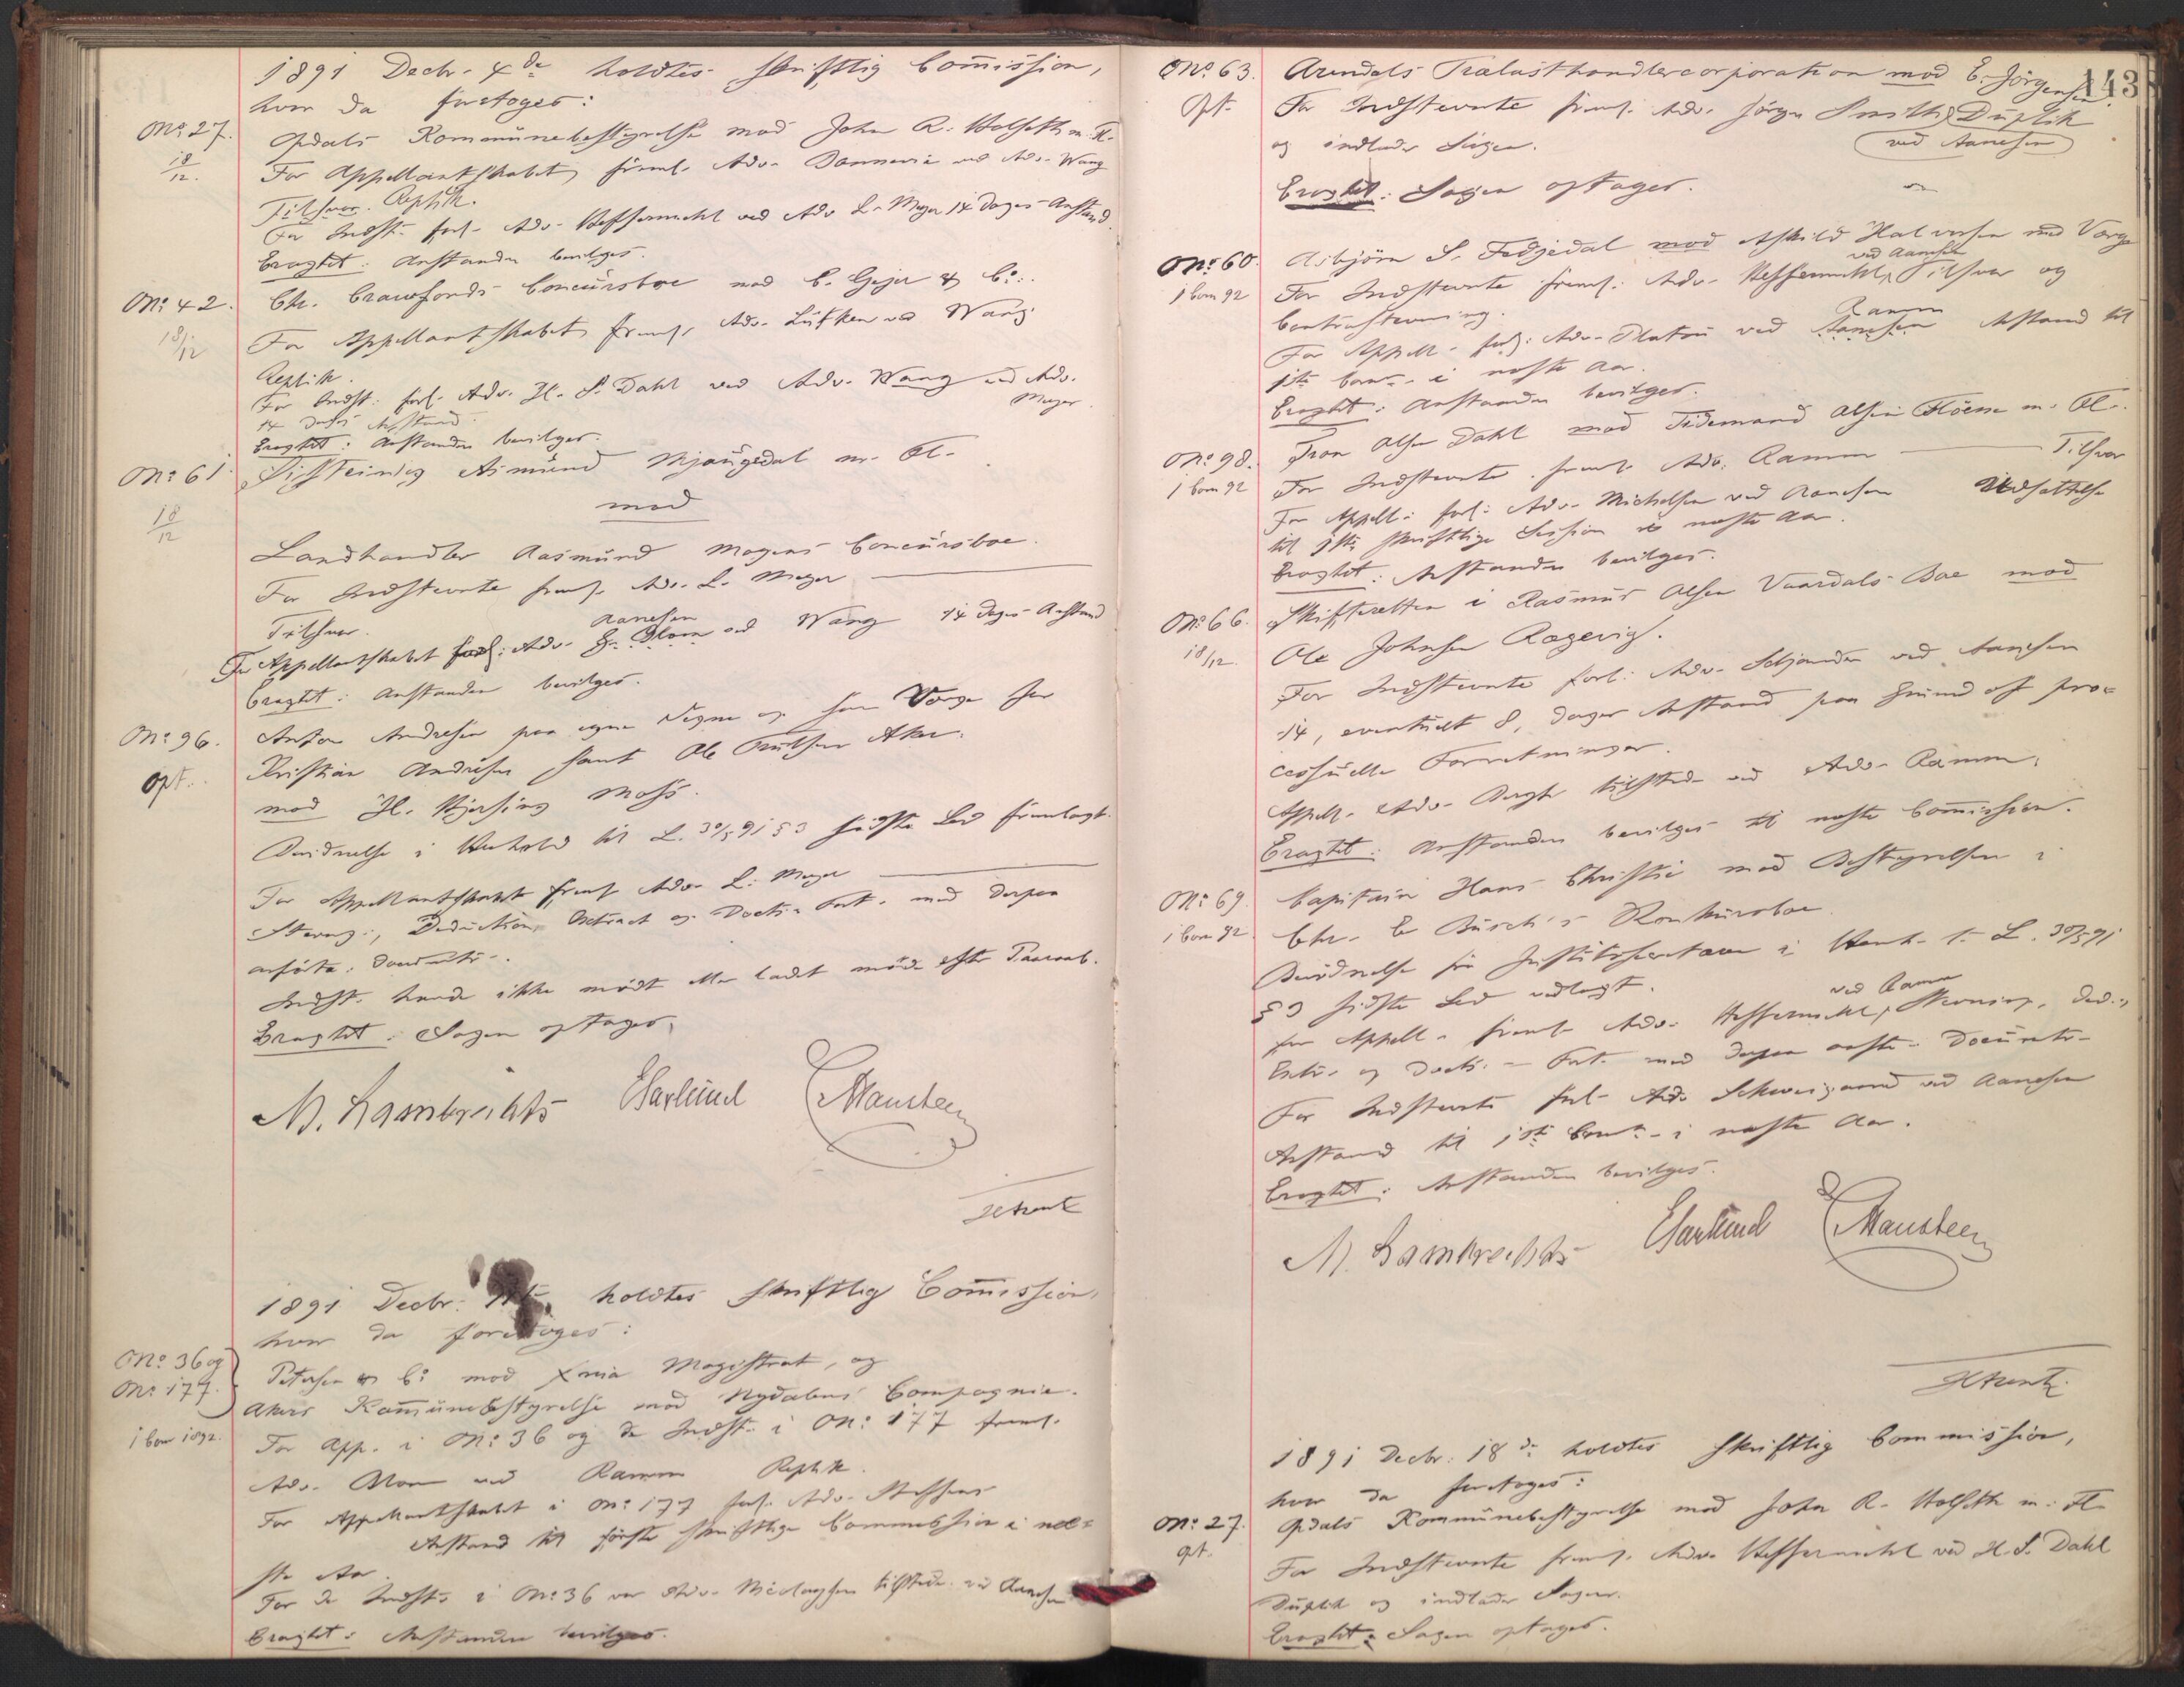 1891 Decbr. 4de holdtes skriftlig Commission,
hvor da foretoges:
No. 27.
18/12.
Opdals Kommunebestyrelse mod John R. Holseth m. Fl.
For Appellantskabet freml. Adv. Dannevig ved Adv. Wang
Tilsvar. Replik.
For Indst. forl. Adv. Heffermehl ved Adv. L. Meyer 14 Dages Anstand.
Eragtet: Anstanden bevilges.
No. 42.
18/12
Chr. Crawfords Concursboe mod C. Gejer & Co.
For Appellantskabet freml. Adv. Lütken ved Wang
Replik.
For Indst. forl. Adv. H. S. Dahl ved Adv. Wang ved Adv.
Meyer.
14 Dages Anstand.
Eragtet: Anstanden bevilges.
No. 61
18/12
Aimund Mjaugedal m. Fl.
mod
Landhandler Aasmund Mogens Concursboe.
For Indstevnte freml. Adv. L. Meyer
Tilsvar.
Aanesen
For Appellantskabet forl: Adv. Blom ved Wang 14 Dages Anstand
Eragtet: Anstanden bevilges.
No. 96.
Opt.
Anton Andresen paa egne Vegne og som Værge for
Kristian Andresen samt Ole Aker.
mod H. Moss.
Bevidnelse i Henhold til L. 30/5 91 § 3 sidste Led fremlagt.
For Appellantskabet freml. Adv. L. Meyer
Stevng., Deduction, Extract og Doct. Fort. med derpaa
anførte Documtr.
Indst. havde ikke mødt eller ladet møde efter Paaraab.
Eragtet: Sagen optages.
M. Lambrechts E Harlund Mansteen
1891 Decbr. holdtes skriftlig Commission,
hvor da foretoges:
No. 36 og
No. 177.
1 Com 1892.
Petersen & Co. mod Xnia Magistrat, og
Akers Kommunebestyrelse mod Nydalens Compagnie.
For App. i No. 36 og de Indst. i No. 177 freml.
Adv. Blom ved Ramm Replik.
For Appellantskabet i No. 177 forl. Adv. Steffens
Anstand til første skriftlige Commission i næ=
ste Aar.
For de Indst. i No. 36 var Adv. Nicolaysen tilstede ved Aanesen
Eragtet: Anstanden bevilges.
143
No. 63.
Opt.
Arendals Trælasthandlercorporation mod E. Jörgensen.
For Indstevnte freml. Adv. Jörgen Smith Duplik
ved Aanesen
og indlader Sagen.
Eragtet: Sagen optages.
No. 60.
1 Com 92
Asbjörn S. Fedgedal mod Askild Halvorsen med Værge
ved Aanesen
For Indstevnte freml. Adv. Heffermehl, Tilsvar og
Contrastevning.
Ramm
For Appell. forl: Adv. Platou ved Aanesen Anstand til
1ste Com. i næste Aar.
Eragtet: Anstanden bevilges.
No. 98.
1 Com 92
Tron Olsen Dahl mod Tidemand Olsen Flöene m. Fl.
For Indstevnte freml. Adv. Ramm Tilsvar
For Appell: forl: Adv. Michelsen ved Aanesen Udsættelse
til 1ste skriftlige Session i næste Aar.
Eragtet: Anstanden bevilges.
No. 66.
18/12.
Skifteretten i Rasmus Olsen Vaardals Boe mod
Ole Johnsen Rægevig.
For Indstevnte forl: Adv. Schjander ved Aanesen
14, eventuelt 8, Dages Anstand paa Grund af pro=
cessuelle Forretninger.
Appell. Adv. Bergh tilstede ved Adv. Ramm.
Eragtet: Anstanden bevilges til næste Commission.
No. 69.
1 Com 92
Capitain Hans Christie mod Bestyrelsen i
Chr. E Busch's Konkursboe.
Bevidnelse fra Justitssecretæren i Henh. t. L. 30/5 91
§ 3 sidste Led vedlagt.
ved Ramm
for Appell. freml. Adv. Heffermehl, Stevning, Ded.,
Extr. og Doct. - Fort. med derpaa anfte. Documtr.
For Indstevnte forl. Adv. Schweigaard ved Aanesen
Anstand til 1ste Com. i næste Aar.
Eragtet: Anstanden bevilges.
M. Lambrechts E Harlund Mansteen
1891 Decbr. 18de holdtes skriftlig Commission,
hvor da foretoges:
No. 27.
opt.
Opdals Kommunebestyrelse mod John R. Holseth m. Fl.
For Indstevnte freml. Adv. Heffermehl ved H. S. Dahl
Duplik og indlader Sagen.
Eragtet: Sagen optages.